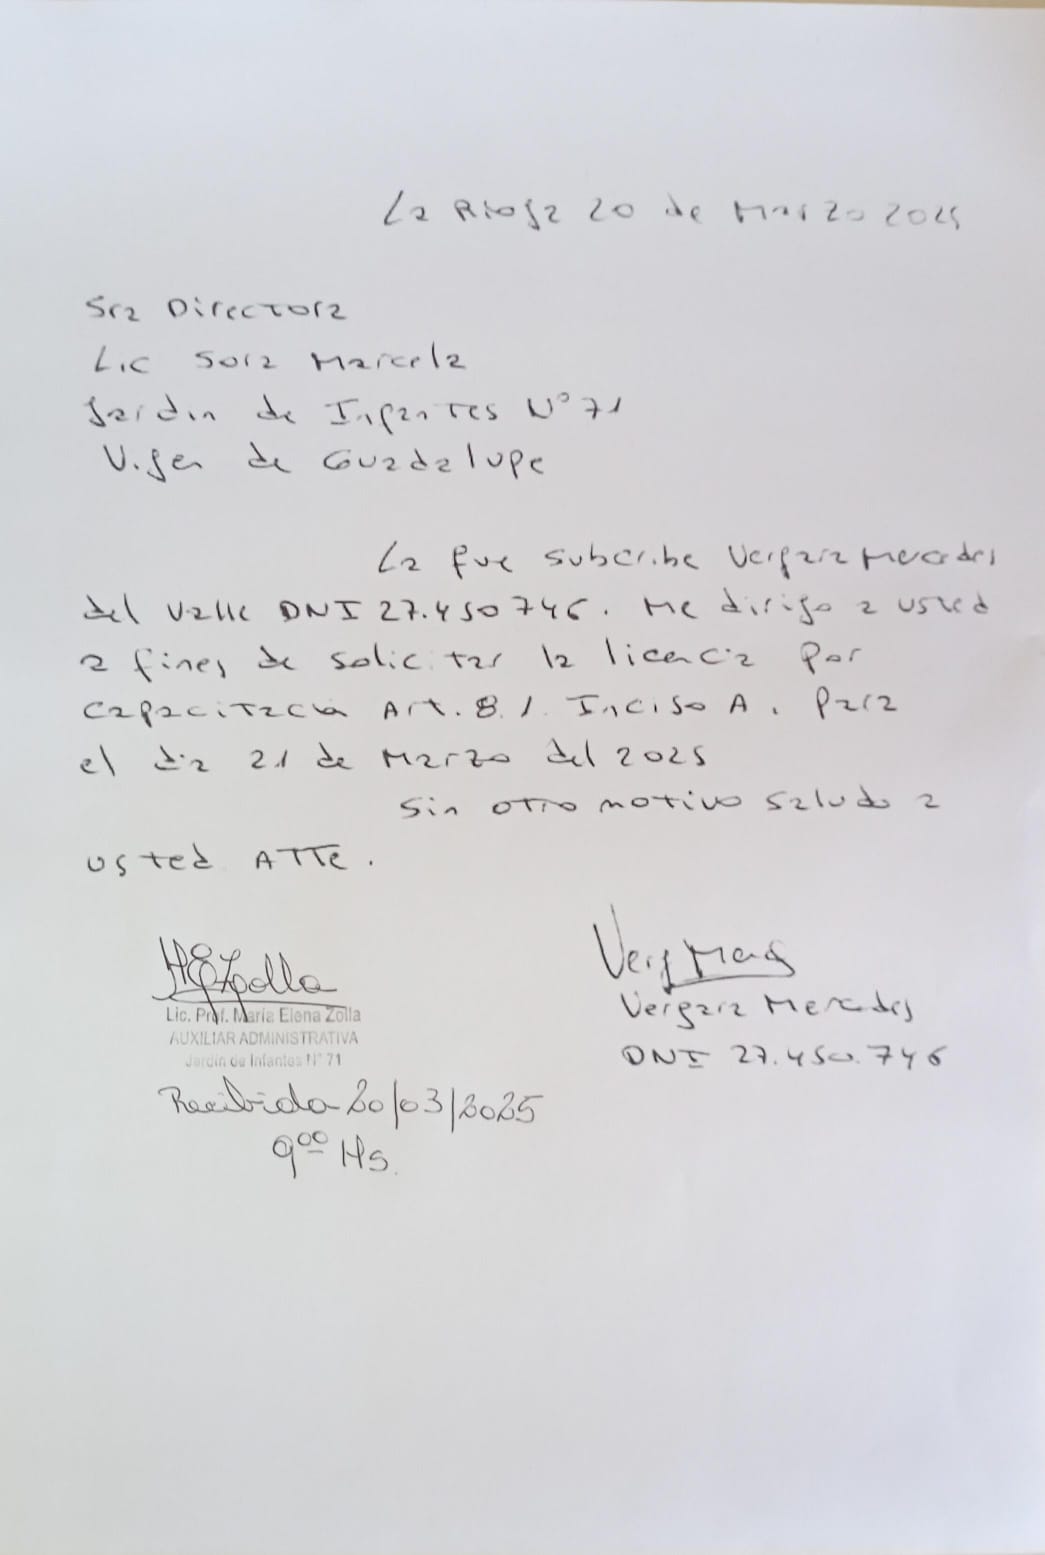 La Rioja 20 de Marzo 2025
Sra Directora
Lic Sora Marcela
Jardin de Infantes N° 71
Virgen de Guadalupe
La que subcribe Vergara Mercedes
del Valle DNI 27.450746. Me dirigo a usted
a fines de solicitar la licencia por
capacitacion Art. 8.1. Inciso A. Para
el dia 21 de Marzo del 2025
Sin otro motivo saludo a
usted ATTE.
MEZolla
Lic. Prof. María Elena Zolla
AUXILIAR ADMINISTRATIVA
Jardín de Infantes N° 71
Recibida 20/03/2025
9⁰⁰ Hs.
Verg Merc
Vergara Mercedes
DNI 27.450.746